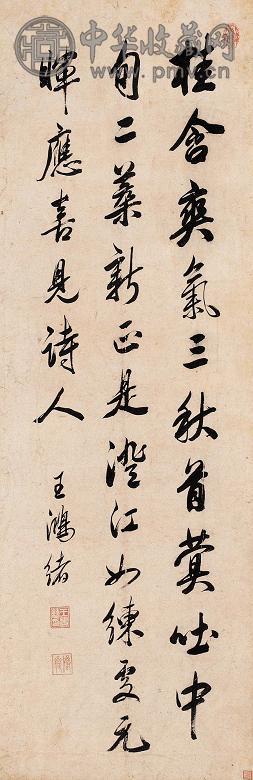 中华收藏网
桂含爽氣三秋首蓂吐中
旬二葉新正是澄江如練處元
暉應喜見詩人
王鴻緒